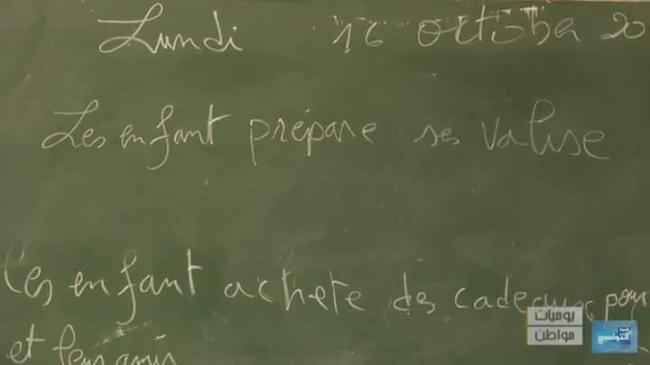 Lundi 16 octobre 20
Les enfant prépare ses valise
les enfant achete des cadeaux pour
et leurs amis
يوميات
مواطن
التونسي